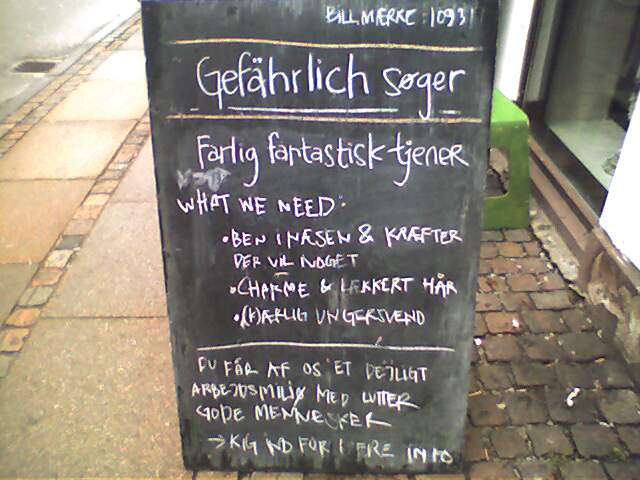 BILLMÆRKE: 10931
Gefährlich søger
Farlig fantastisk tjener
WHAT WE NEED:
• BEN I NÆSEN & KRÆFTER
DER VIL NOGET
• CHARME & LÆKKERT HÅR
• (K)ÆRLIG UNGERSVEND
DU FÅR AF OS ET DEJLIGT
ARBEJDSMILJØ MED LUTTER
GODE MENNESKER
→ KIG IND FOR MERE INFO